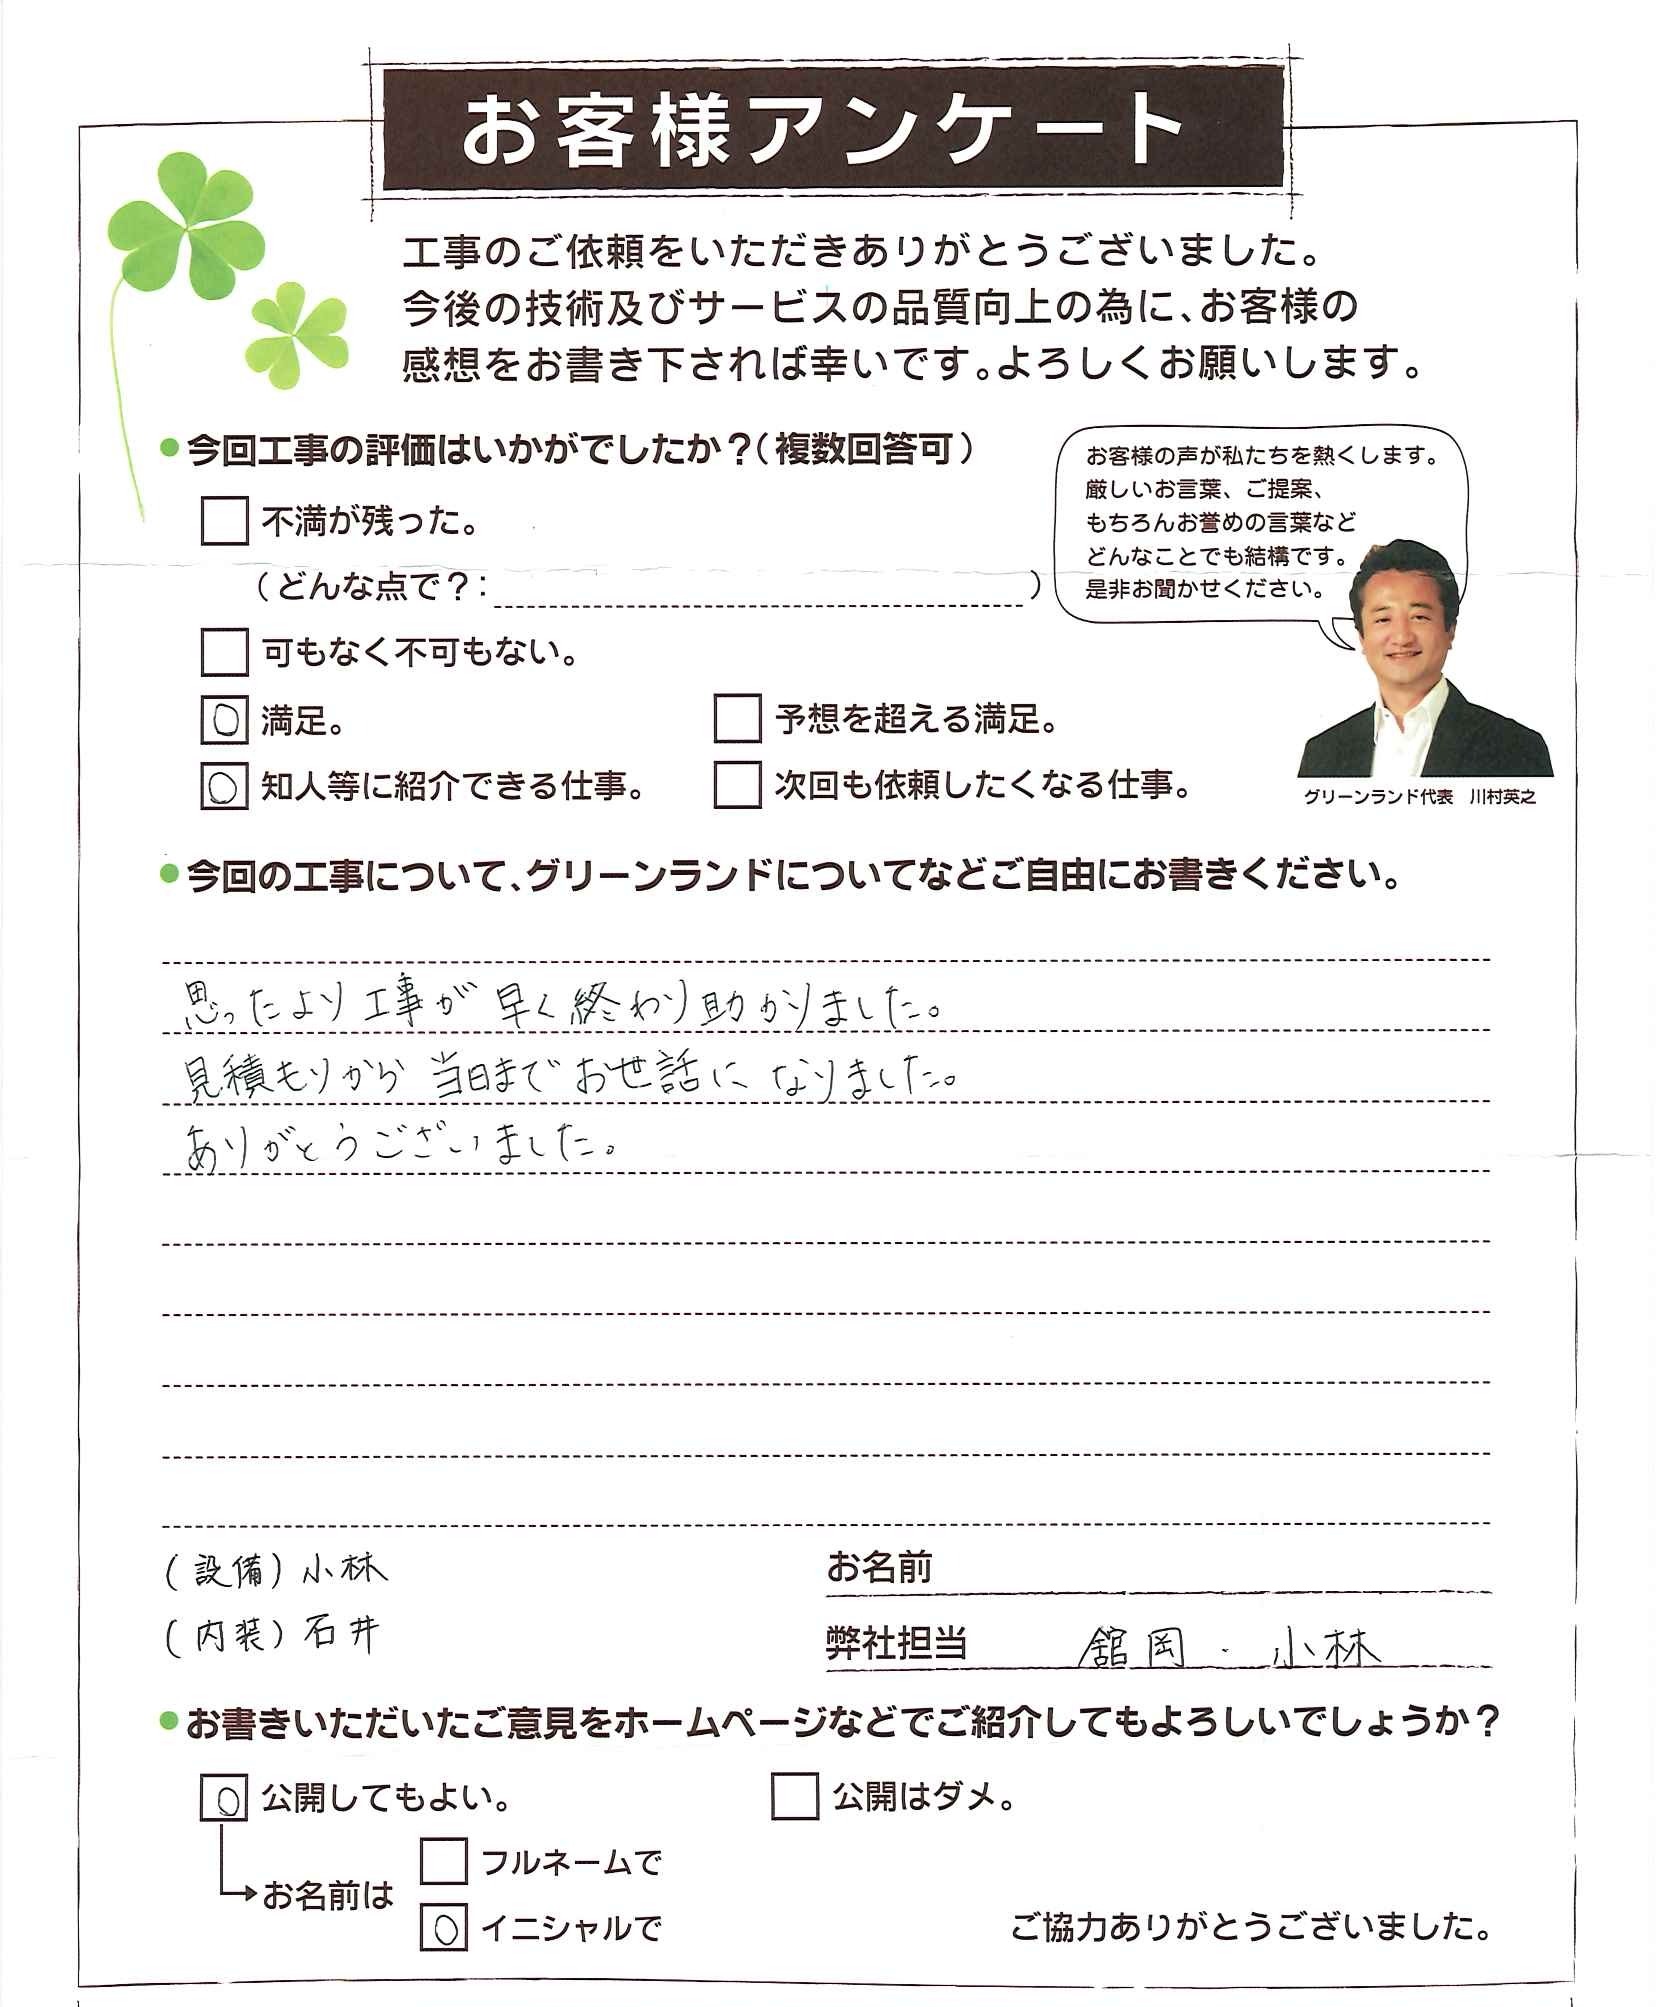 お客様アンケート
工事のご依頼をいただきありがとうございました。
今後の技術及びサービスの品質向上の為に、お客様の
感想をお書き下されば幸いです。よろしくお願いします。
●今回工事の評価はいかがでしたか？(複数回答可)
不満が残った。
(どんな点で？: )
可もなく不可もない。
○ 満足。
予想を超える満足。
○ 知人等に紹介できる仕事。
次回も依頼したくなる仕事。
お客様の声が私たちを熱くします。
厳しいお言葉、ご提案、
もちろんお誉めの言葉など
どんなことでも結構です。
是非お聞かせください。
グリーンランド代表　川村英之
●今回の工事について、グリーンランドについてなどご自由にお書きください。
思ったより工事が早く終わり助かりました。
見積もりから当日までお世話になりました。
ありがとうございました。
(設備)小林
(内装)石井
お名前
弊社担当 舘岡・小林
●お書きいただいたご意見をホームページなどでご紹介してもよろしいでしょうか？
○ 公開してもよい。
公開はダメ。
お名前は
フルネームで
○ イニシャルで
ご協力ありがとうございました。